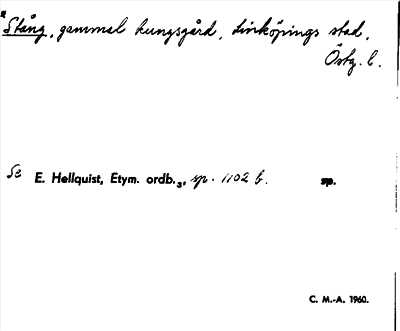 *Stång, gammal kungsgård, Linköpings stad,
Östg. l.
Se E. Hellquist, Etym. ordb.₃, sp. 1102 b. sp.
C. M.-A. 1960.